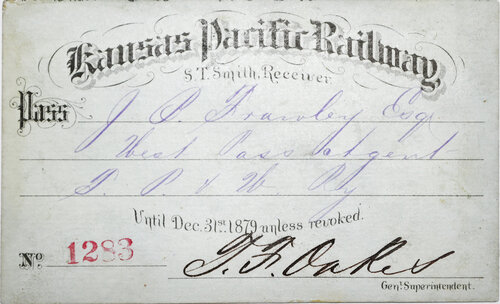 Kansas Pacific Railway,
S. T. Smith, Receiver.
Pass J. P. Frawley Esq
West Pass Agent
T. P. & W. Ry
Until Dec. 31st. 1879 unless revoked.
No. 1283 T. F. Oakes
Genl. Superintendent.